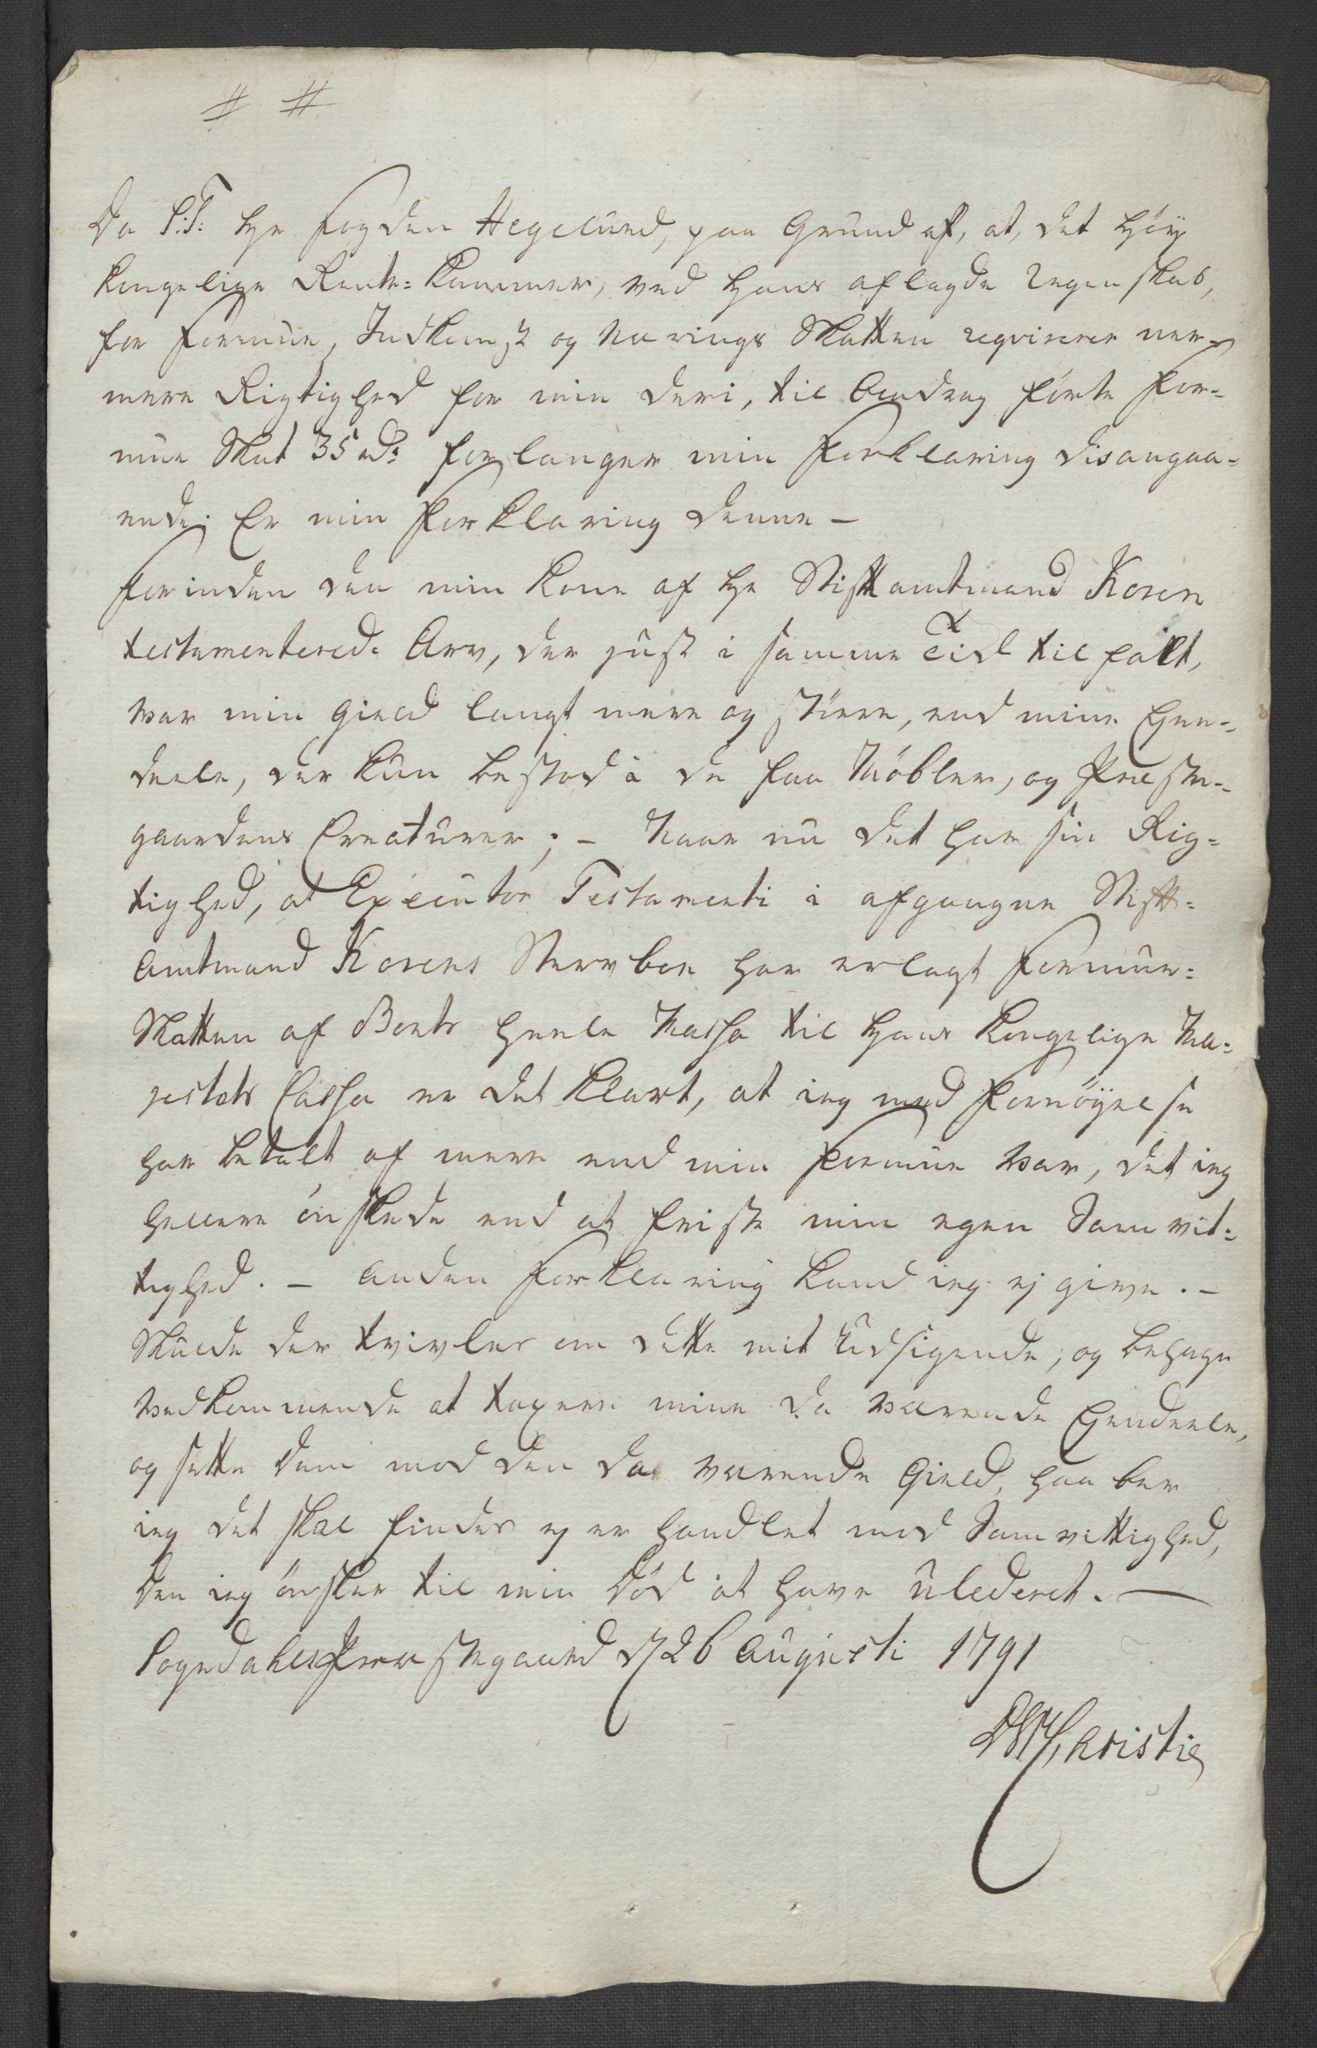 # #
Da S:T: Hr Fogden Hegelund, paa Grund af, at, det Høy
Kongelige Rente-Kammer, ved Hans aflagde Regenskab,
for Formue, Indkomst og Nærings Skatten reqvirerer ner-
mere Rigtighed for min deri, til Andrag førte For-
mue Skat 35 rd: forlanger min Forklaring disangaa-
ende; Er min Forklaring denne –
Forinden den min Kone af Hr Stiftamtmand Koren
testamenterede Arv, der just i samme Tid tilfalt,
var min Gield langt mere og større, end mine Eyen-
deele, der kun bestod i de faa Møbler, og Præste-
gaardens Creaturer; – Naar nu det har sin Rig-
tighed, at Executor Testamenti i afgangne Stift-
Amtmand Korens Stervboe har erlagt Formue-
Skatten af Boets heele Massa til Hans Kongelige Ma-
jestæts Cassa er det klart, at ieg med Fornøyelse
har betalt af mere end min Formue var, det ieg
hellere ønskede end at friste min egen Samvit-
tighed. – Anden Forklaring kand ieg ej give. –
Skulde der tvivles om dette mit Udsigende, og behage
vedkommende at taxere mine da værende Eyendeele,
og sætte dem mod den da værende Gield, haaber
ieg det skal findes ej er handlet mod Samvittighed,
den ieg ønsker til min Død at have ulæderet. –
Sogndahls Præstegaard d 26 Augusti 1791
Christie